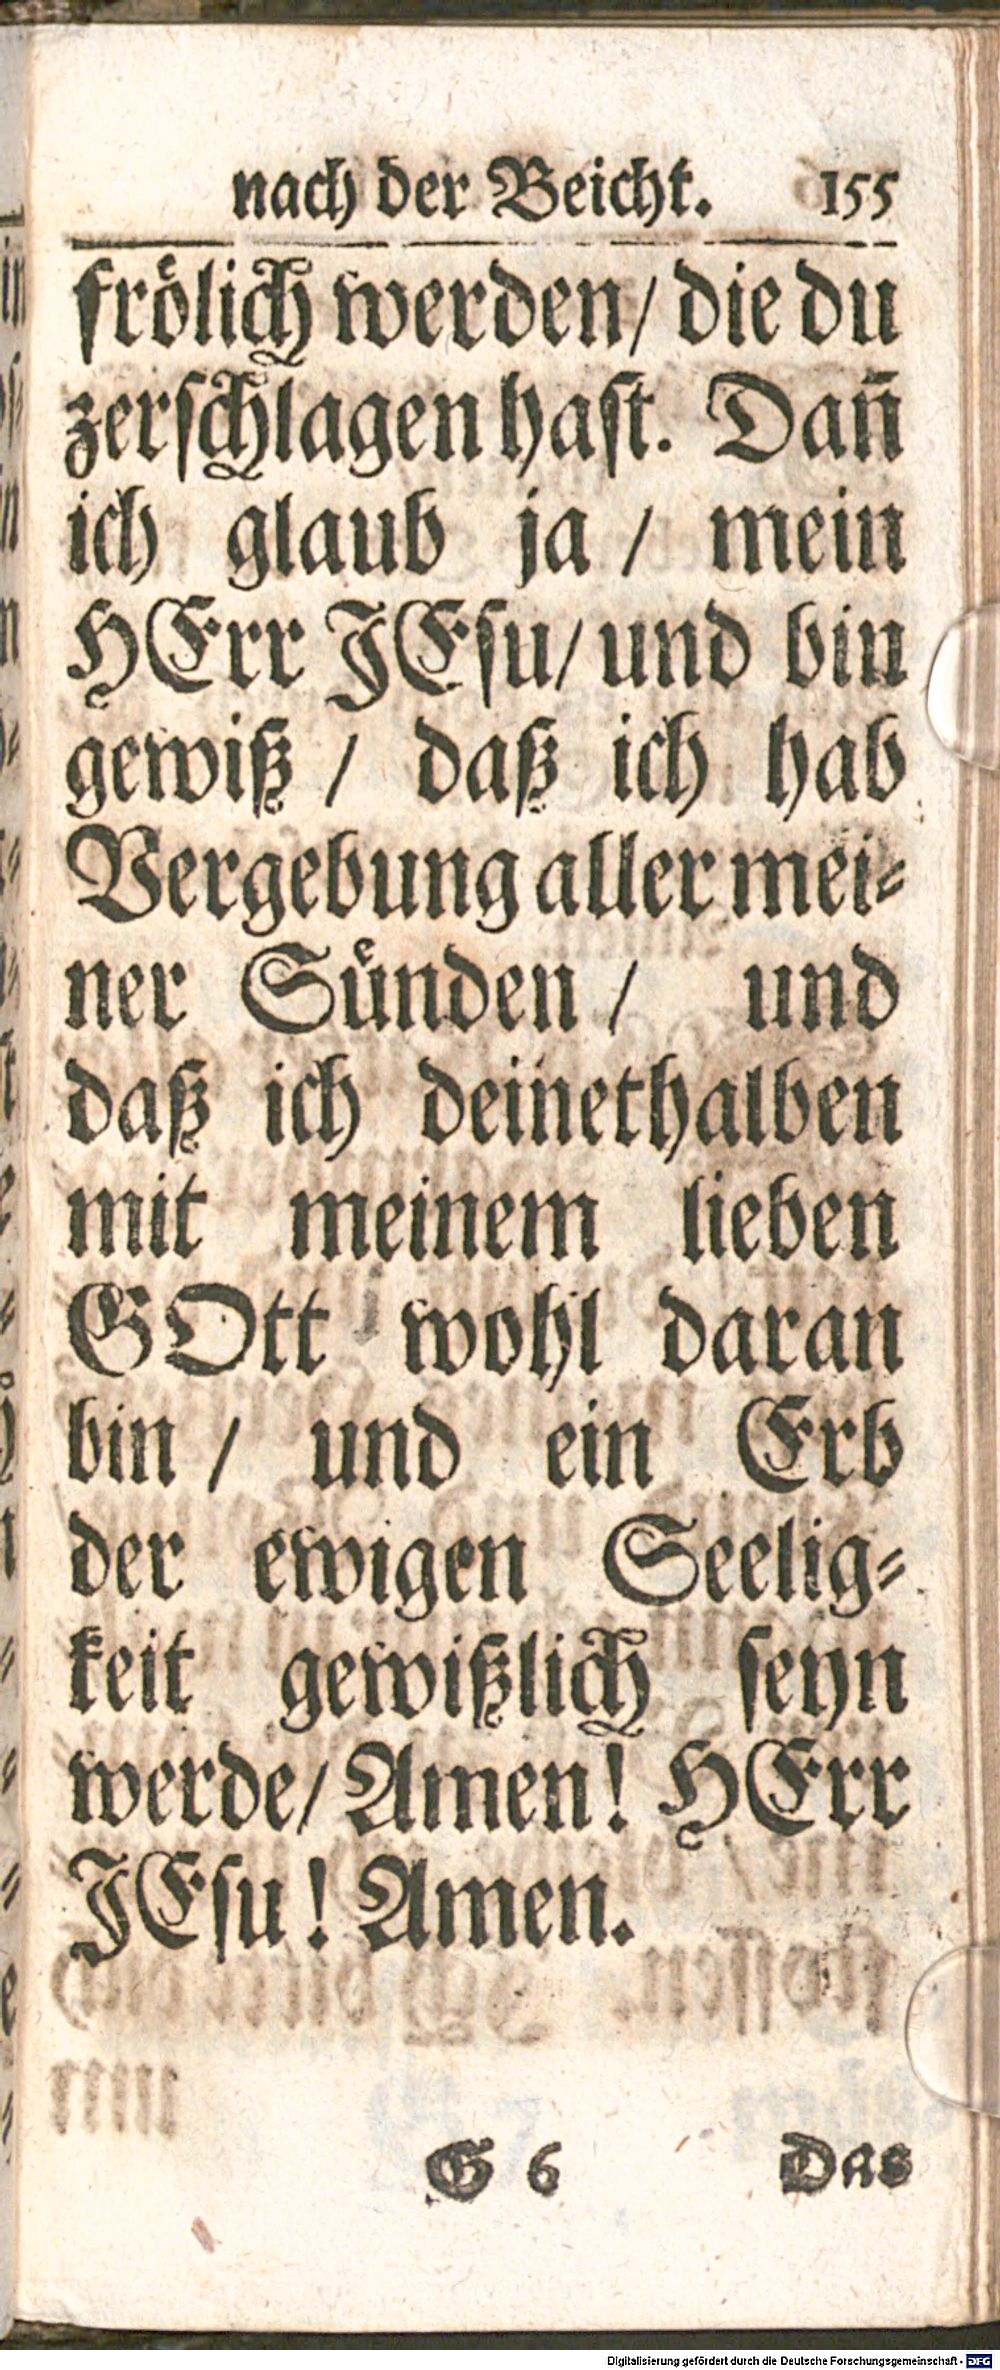 nach der Beicht. 155
frölich werden/ die du
zerschlagen hast. Dañ
ich glaub ja / mein
HErr JEsu/ und bin
gewiß / daß ich hab
Vergebung aller mei-
ner Sünden / und
daß ich deinethalben
mit meinem lieben
GOtt wohl daran
bin / und ein Erb
der ewigen Seelig-
keit gewißlich seyn
werde/ Amen! HErr
JEsu! Amen.
G 6 Das
Digitalisierung gefördert durch die Deutsche Forschungsgemeinschaft - DFG